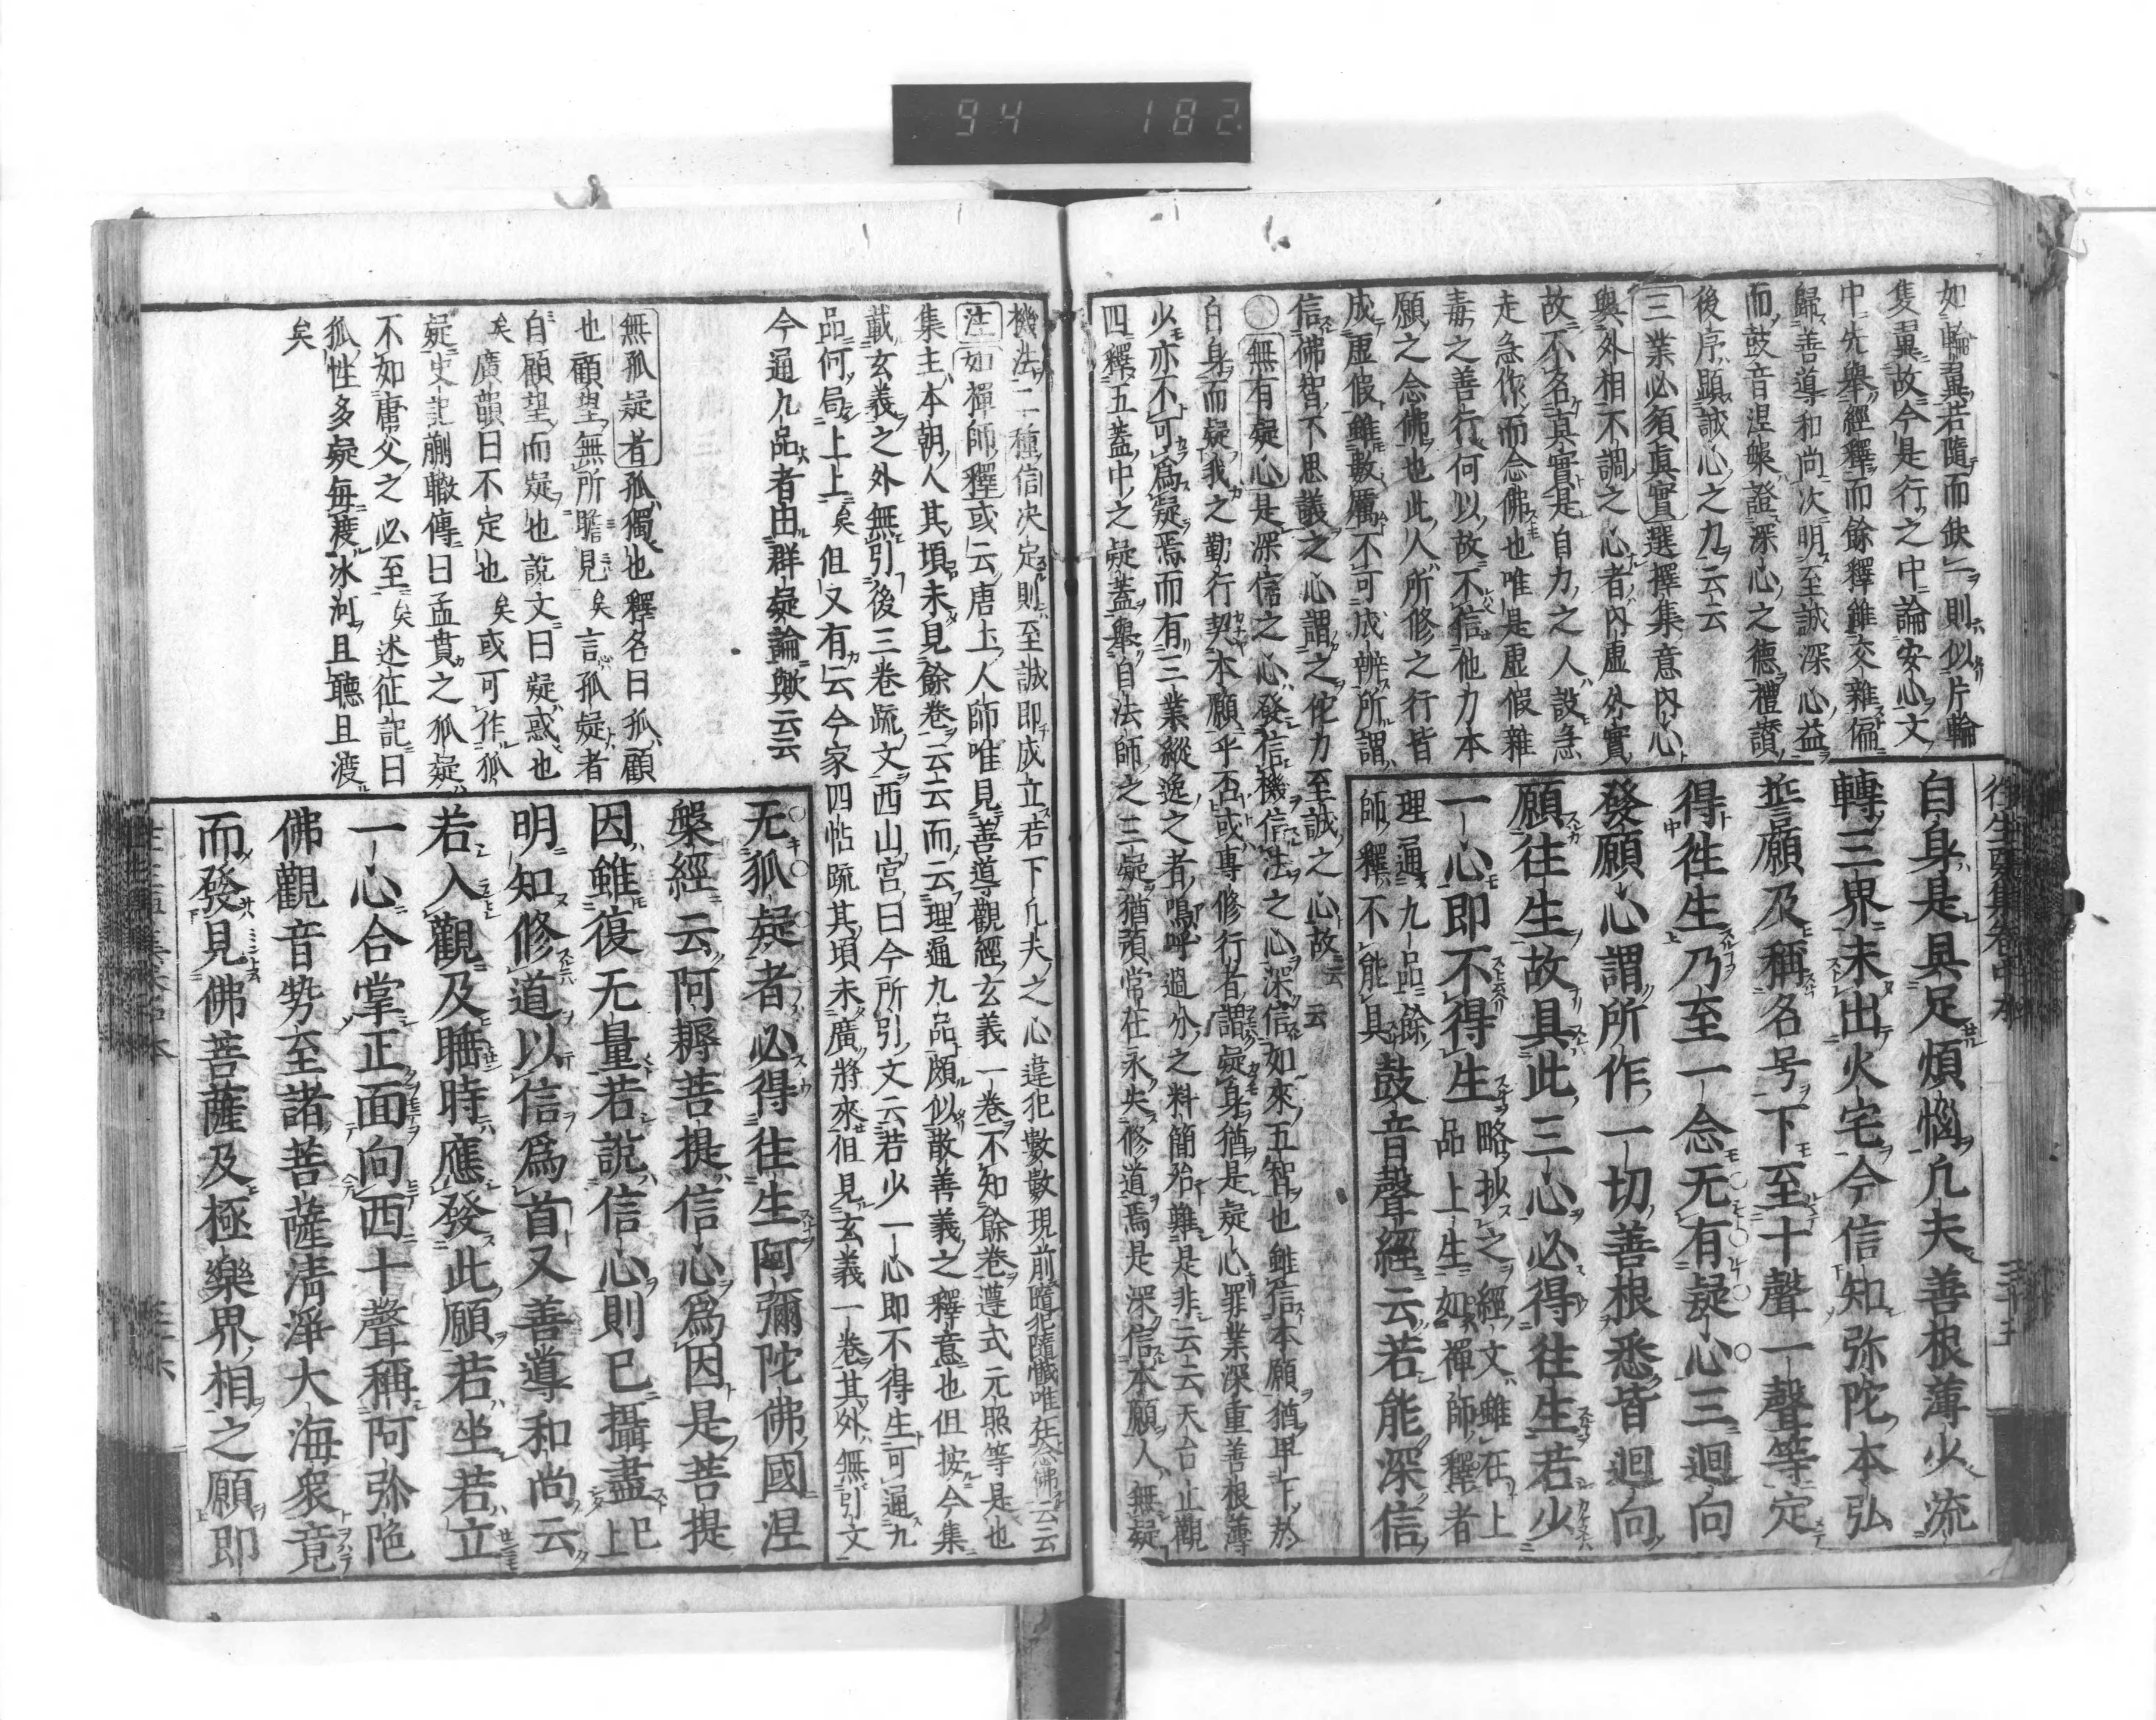 94 182
如輪翼若隨而缺一則似片輪
隻翼故今是行之中論安心文
中先舉經釋而餘釋雖交雜偏
歸善導和尚次明至誠深心益
而鼓音涅槃證深心之德禮讚
後序顯誠心之力云云
三業必須眞實選擇集意內心
與外相不調之心者內虛外實
故不名真實是自力之人設急
走急作而念佛也唯是虛假雜
毒之善行何以故不信他力本
願之念佛也此人所修之行皆
成虛假雖數勵不可成辨所謂
信佛智不思議之心謂之佗力至誠之心故云云
無有疑心是深信之心發信機信法之心深信如來五智也雖信本願猶卑下於
自身而疑我之勤行契本願乎否或專修行者謂疑身猶是疑心罪業深重善根薄
少亦不可爲疑焉而有三業縱逸之者嗚呼過分之料簡殆難是非云云天台止觀
四釋五蓋中之疑蓋舉自法師之三疑猶預常在永失修道焉是深信本願人無疑
往生要集卷中本
自身是具足煩惱凡夫善根薄少流
轉三界未出火宅今信知弥陀本弘
誓願及稱名号下至十聲一聲等定
得徃生乃至一念无有疑心三迴向
發願心謂所作一切善根悉皆迴向
願往生故具此三心必得往生若少
一心即不得生略抄之經文雖在上品上生如禪師釋者
理通九品餘師釋不能具鼓音聲經云若能深信
機法二種信決定則至誠即成立若下凡夫之心違犯數數現前隨犯隨懺唯在念佛云云
注如禪師釋或云唐土人師唯見善導觀經玄義一卷不知餘卷遵式元照等是也
集主本朝人其頃未見餘卷云云而云理通九品頗似散善義之釋意也但按今集
載玄義之外無引後三卷疏文西山宮曰今所引文云若少一心即不得生可通九
品何局上上矣但又有云今家四帖疏其頃未廣將來但見玄義一卷其外無引文
今通九品者由群疑論歟云云
無孤疑者孤獨也釋名曰孤顧
也顧望無所瞻見矣言孤疑者
自顧望而疑也說文曰疑惑也
矣廣韻曰不定也矣或可作狐
疑史記蒯轍傳曰孟賁之狐疑
不如庸父之必至矣述征記曰
狐性多疑每渡氷河且聽且渡
矣
无狐疑者必得往生阿彌陀佛國涅
槃經云阿耨菩提信心爲因是菩提
因雖復无量若說信心則已攝盡已上
明知修道以信爲首又善導和尚云
若入觀及睡時應發此願若坐若立
一心合掌正面向西十聲稱阿弥陀
佛觀音勢至諸菩薩清淨大海衆竟
而發見佛菩薩及極樂界相之願即